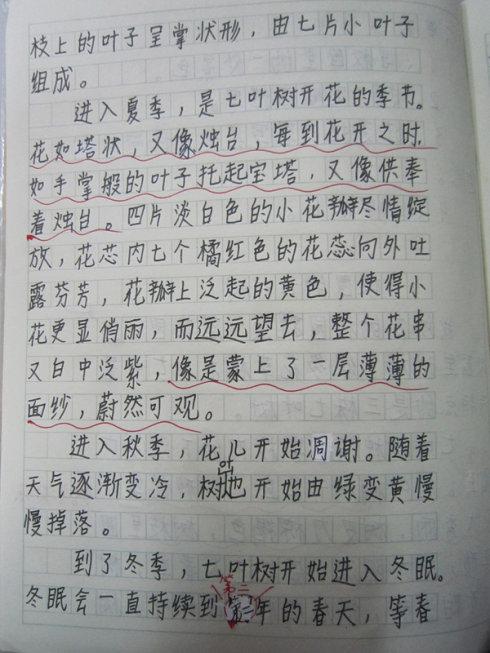 枝上的叶子呈掌状形，由七片小叶子
组成。
进入夏季，是七叶树开花的季节。
花如塔状，又像烛台，每到花开之时，
如手掌般的叶子托起宝塔，又像供奉
着烛台。四片淡白色的小花瓣尽情绽
放，花芯内七个橘红色的花蕊向外吐
露芬芳，花瓣上泛起的黄色，使得小
花更显俏丽，而远远望去，整个花串
又白中泛紫，像是蒙上了一层薄薄的
面纱，蔚然可观。
进入秋季，花儿开始凋谢。随着
天气逐渐变冷，树叶也开始由绿变黄慢
慢掉落。
到了冬季，七叶树开始进入冬眠。
冬眠会一直持续到第二年的春天，等春